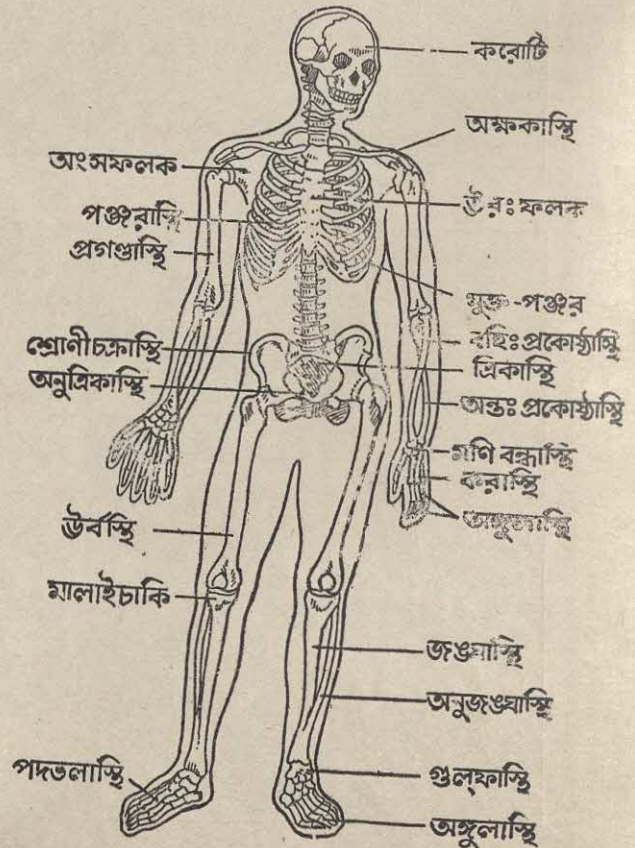 করোটি
অক্ষকাস্থি
অংসফলক
উরঃফলক
পঞ্জরাস্থি
প্রগণ্ডাস্থি
মুক্ত-পঞ্জর
বহিঃপ্রকোষ্ঠাস্থি
শ্রোণীচক্রাস্থি
ত্রিকাস্থি
অনুত্রিকাস্থি
অন্তঃপ্রকোষ্ঠাস্থি
মণি বন্ধাস্থি
করাস্থি
অঙ্গুলাস্থি
ঊর্বস্থি
মালাইচাকি
জঙঘাস্থি
অনুজঙঘাস্থি
পদতলাস্থি
গুল্ফাস্থি
অঙ্গুলাস্থি